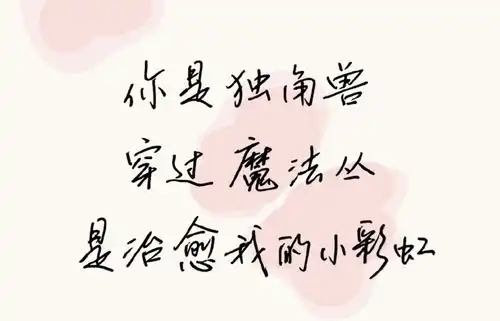 你是独角兽
穿过魔法丛
是治愈我的小彩虹